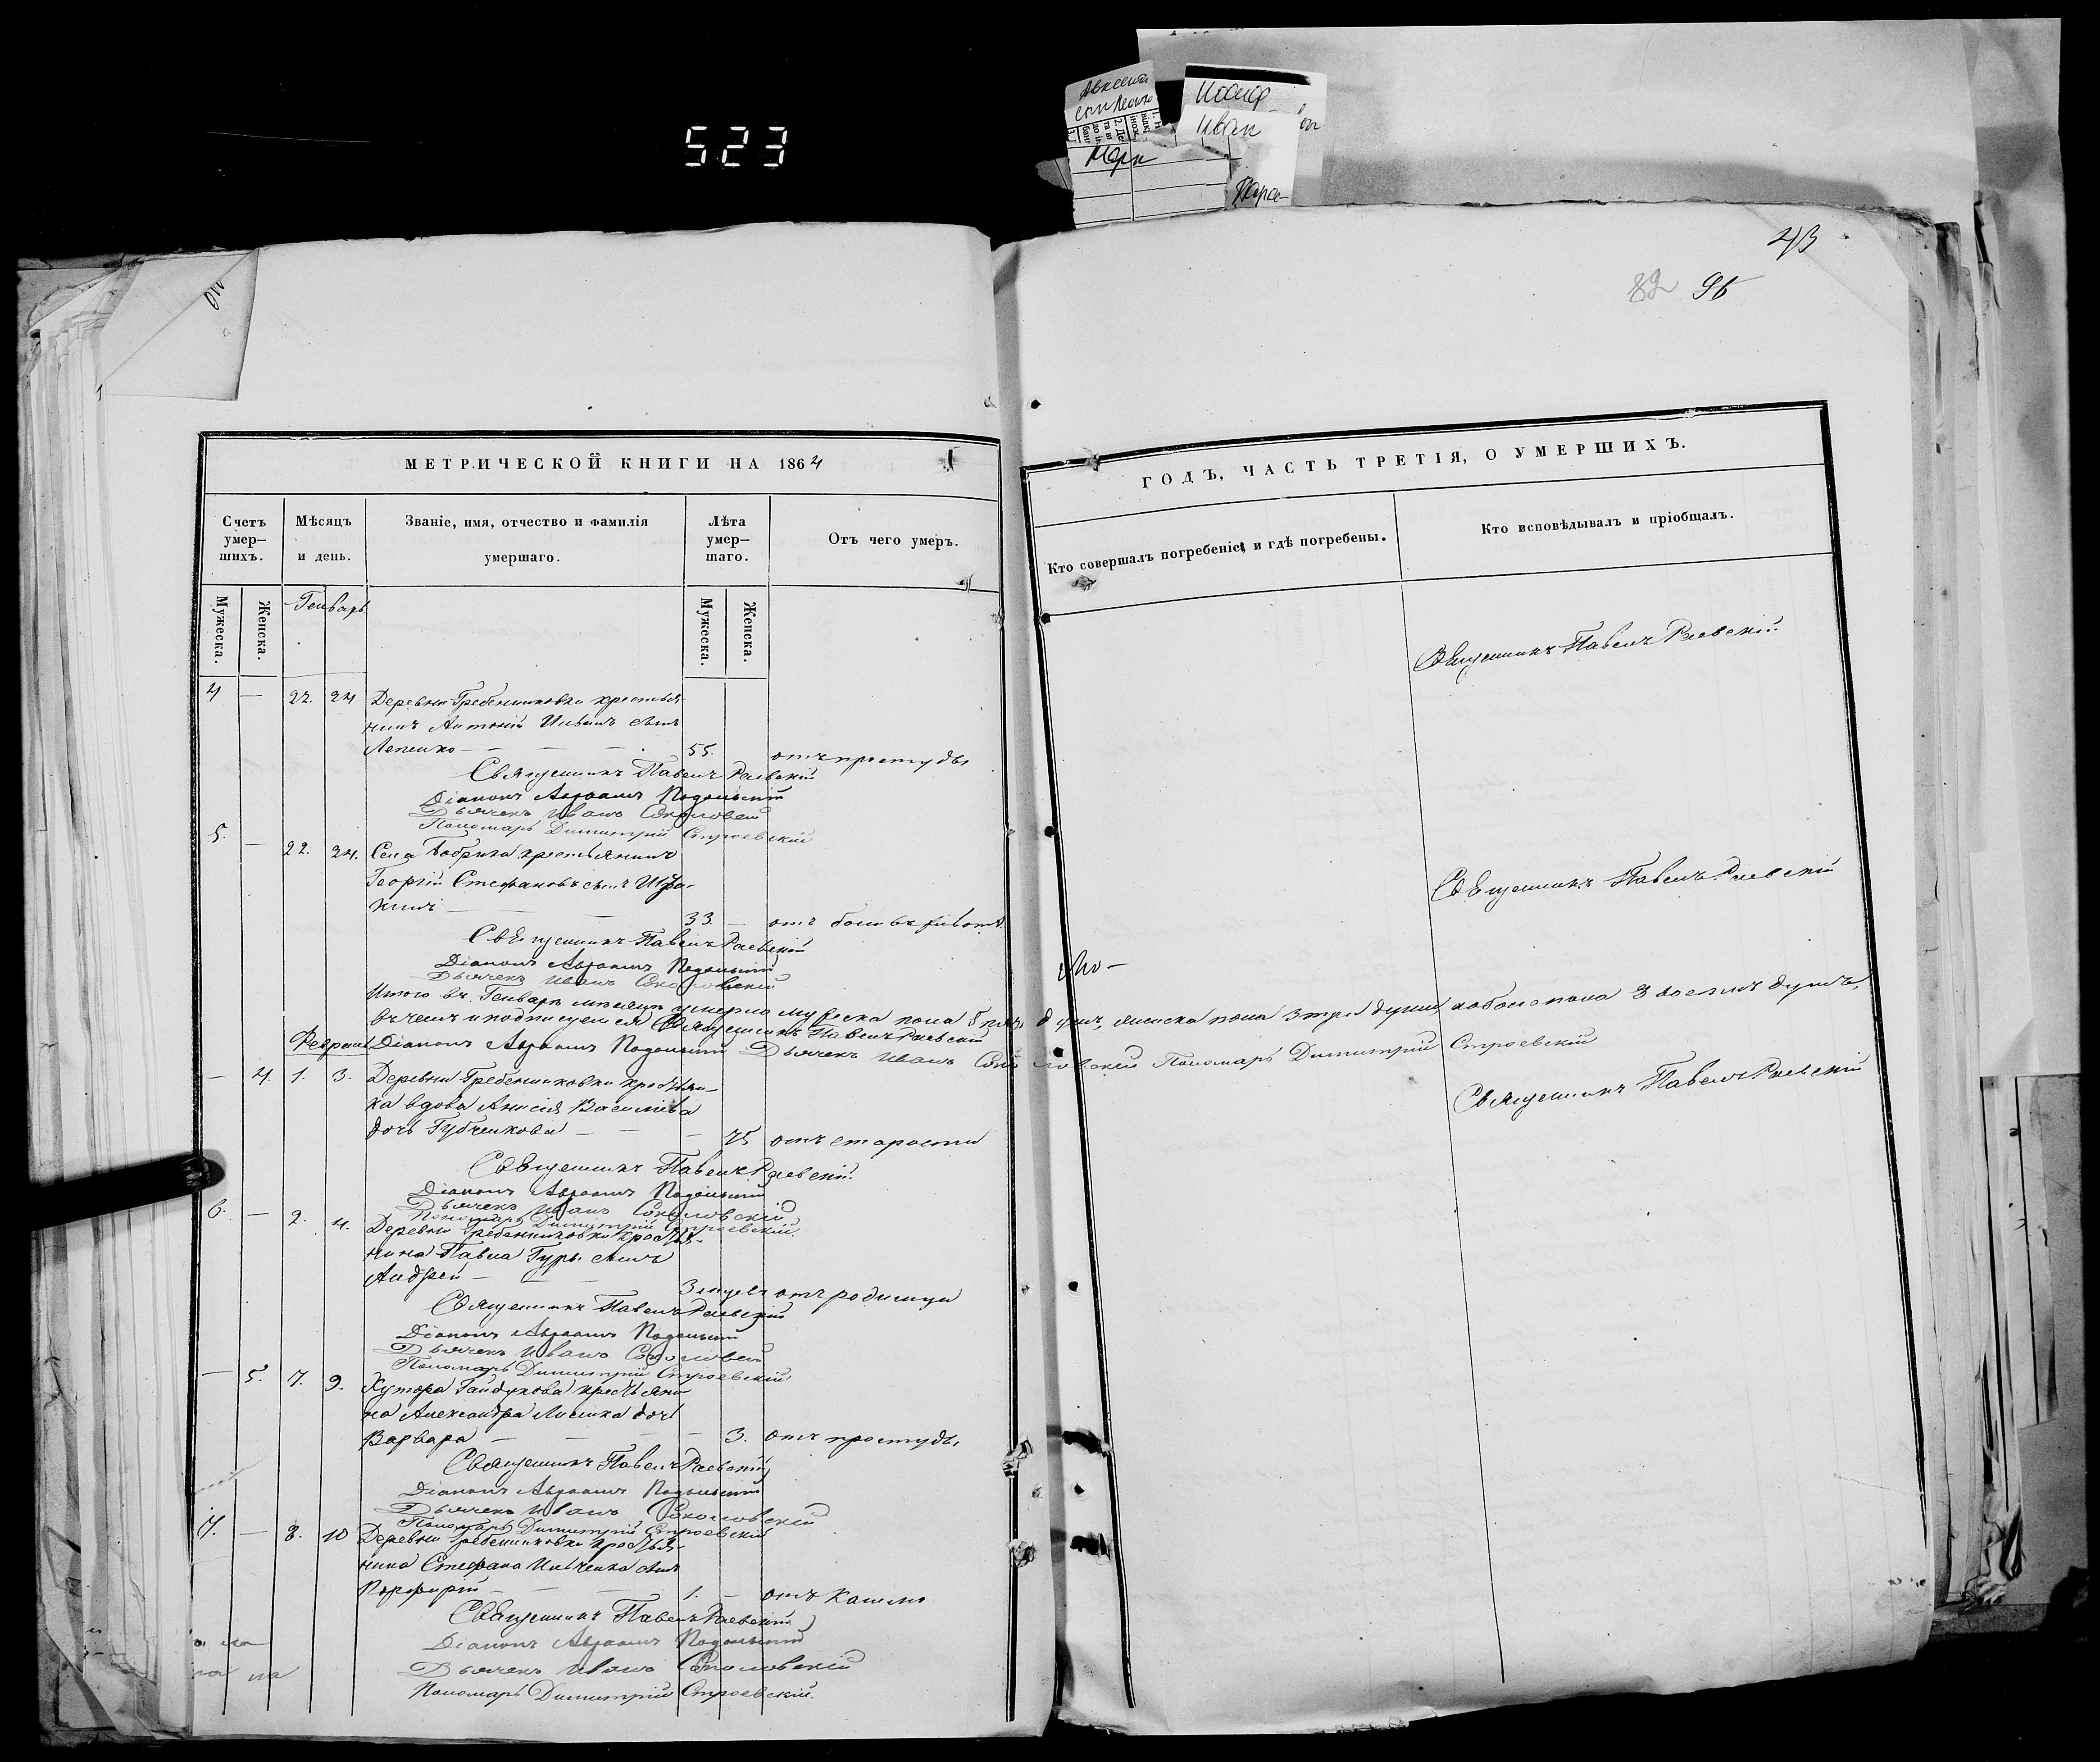 523
Иван
43
82 96
МЕТРИЧЕСКОЙ КНИГИ НА 1864
ГОДЪ, ЧАСТЬ ТРЕТІЯ, О УМЕРШИХЪ.
Счетъ умер—шихъ.
Мѣсяцъ и день.
Званіе, имя, отчество и фамилія умершаго.
Лѣта умер—шаго.
Отъ чего умеръ.
Кто совершалъ погребеніе и гдѣ погребены.
Кто исповѣдывалъ и пріобщалъ.
Мужеска.
Женска.
Генварь
Мужеска.
Женска.
Священникъ Павелъ Раевскій
4 — 22. 24 Деревни Гребенниковки крестья-
нинъ Антоній сынъ
— — — 55. отъ простуды
Священникъ Павелъ Раевскій
Діаконъ Авраамъ Подольскій
Дьячекъ Иванъ
Пономарь Димитрій Строевскій
5. — 22. 24. Села Бобрика крестьянинъ
Георгій Стефановъ сынъ
— — 33. — отъ боли въ животѣ
Священникъ Павелъ Раевскій
Священникъ Павелъ Раевскій
Діаконъ Авраамъ Подольскій
Дьячекъ Иванъ Соколовскій
Итого въ Генварѣ мѣсяцѣ умерло мужеска пола 5 пять душъ, женска пола 3 три души, а обоего пола 8 восемь душъ,
въ чемъ и подписуемся Священникъ Павелъ Раевскій
Февраль Діаконъ Авраамъ Подольскій Дьячекъ Иванъ Соколовскій Пономарь Димитрій Строевскій
— 4. 1. 3. Деревни Гребенниковки крестьян-
ка вдова Анисія Васильева
дочь Губченкова — — — 75 отъ старости
Священникъ Павелъ Раевскій
Священникъ Павелъ Раевскій
Діаконъ Авраамъ Подольскій
Дьячекъ Иванъ Соколовскій
Пономарь Димитрій Строевскій
6. — 2. 4. Деревни Гребенниковки крестья-
нина Павла сынъ
Андрей — — — 3 отъ родимца
Священникъ Павелъ Раевскій
Діаконъ Авраамъ Подольскій
Дьячекъ Иванъ
Пономарь Димитрій Строевскій
— 5. 7. 9. Хутора Гайдукова крестьяни-
на Александра дочь
Варвара — — — — 3. отъ простуды
Священникъ Павелъ Раевскій
Діаконъ Авраамъ Подольскій
Дьячекъ Иванъ Соколовскій
Пономарь Димитрій Строевскій
7. — 8. 10 Деревни Гребенниковки крестья-
нина Стефана Ильченка сынъ
Порфирій — — — 1. — отъ кашлю
Священникъ Павелъ Раевскій
Діаконъ Авраамъ Подольскій
Дьячекъ Иванъ Соколовскій
Пономарь Димитрій Строевскій.